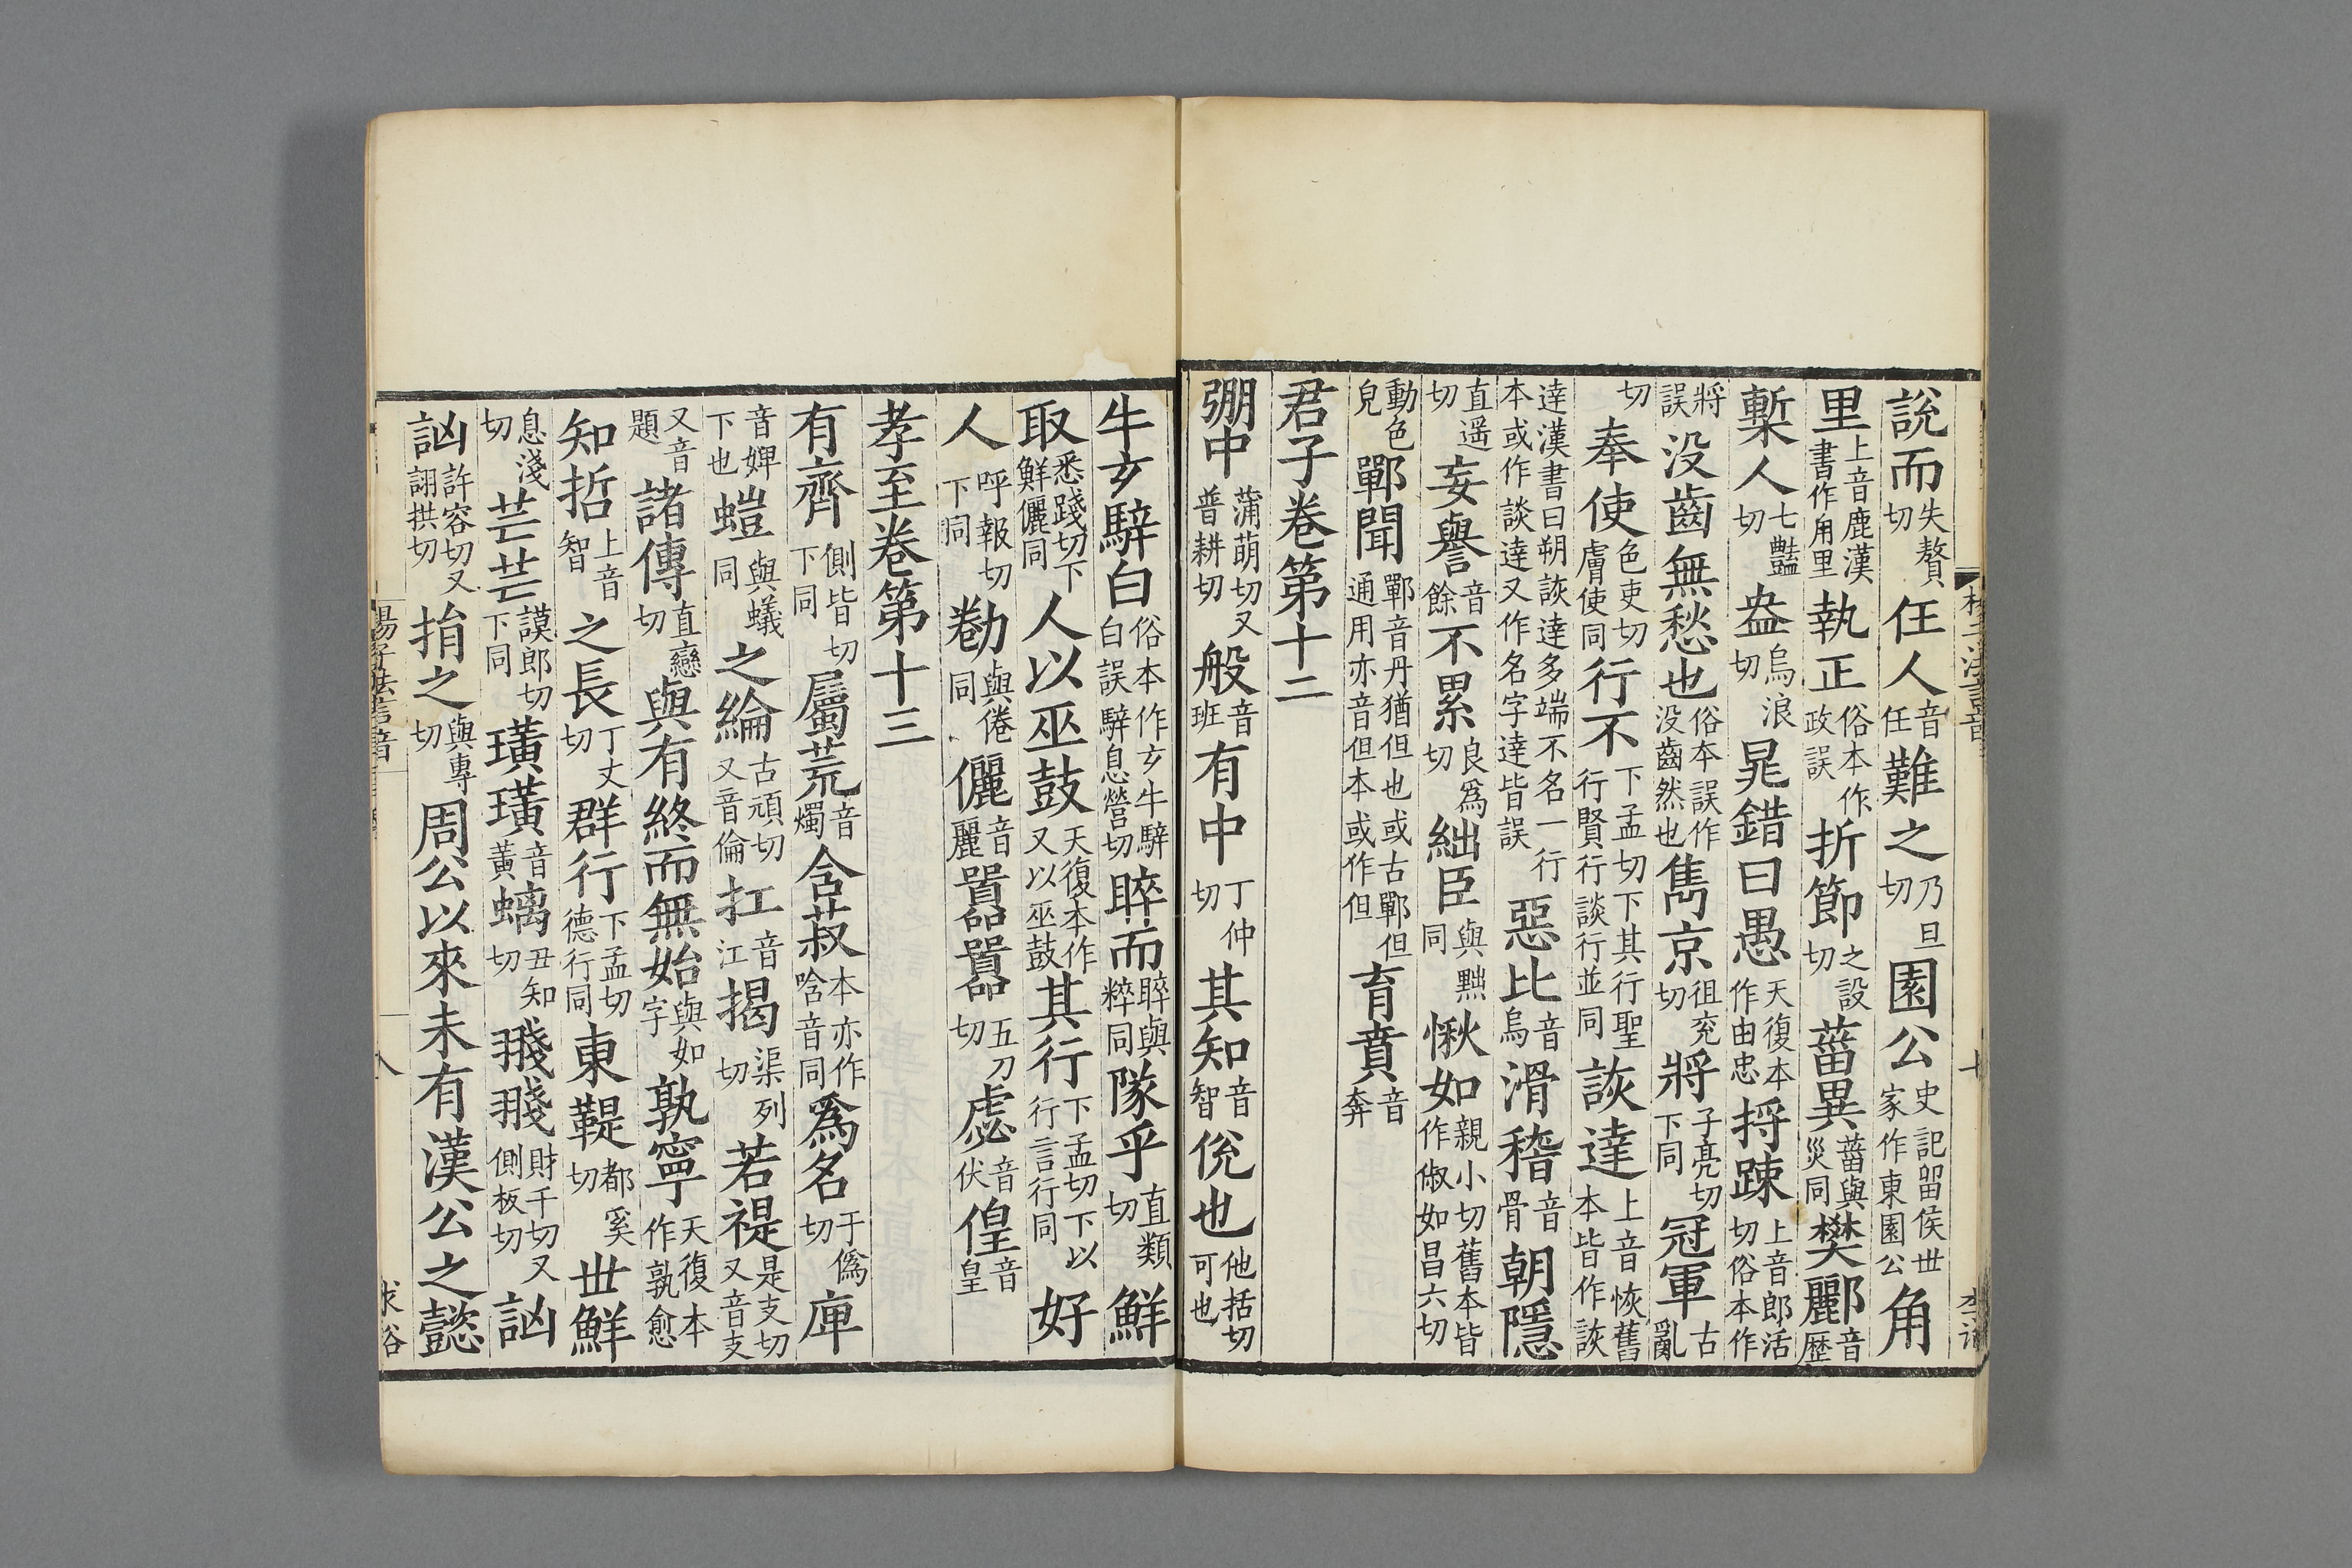 說而失贅切任人音任難之乃旦切園公史記留侯世家作東園公角
里上音鹿漢書作角里執正俗本作政誤折節之設切蕃異蕃與災同樊酈音歷
槧人七豔切盎烏浪切鼂錯曰愚天復本作由忠捋踈上音郎活切俗本作
將誤没齒無愁也俗本誤作没齒然也雋京徂兖切將子亮切下同冠軍古亂
切奉使色吏切膚使同行不下孟切下其行聖行賢行談行並同詼達上音恢舊本皆作談
達漢書曰朔詼達多端不名一行本或作談達又作名字達皆誤惡比音烏滑稽音骨朝隱
直遥切妄譽音餘不累良爲切絀臣與黜同愀如親小切舊本皆作俶如昌六切
動色皃鄲聞鄲音丹猶但也或古鄲但通用亦音但本或作但育賁音奔
君子卷第十二
弸中蒲萌切又普耕切般音班有中丁仲切其知音智侻也他括切可也
牛玄騂白俗本作玄牛騂白誤騂息營切睟而睟與粹同隊乎直類切鮮
取悉踐切下鮮儷同人以巫鼓天復本作又以巫鼓其行下孟切下以行言行同好
人呼報切下同勌與倦同儷音麗嚻嚻五刀切虙音伏偟音皇
孝至卷第十三
有齊側皆切下同屬荒音燭含菽本亦作唅音同爲名于僞切庳
音婢下也螘與蟻同之綸古頑切又音倫扛音江揭渠列切若禔是支切又音支
又音題諸傳直戀切與有終而無始與如字孰寧天復本作孰愈
知哲上音智之長丁丈切群行下孟切德行同東鞮都奚切世鮮
息淺切芒芒謨郎切下同璜璜音黃螭丑知切䎒䎒財千切又側板切訩
訩許容切又詡拱切捐之與專切周公以來未有漢公之懿
揚子法言音
八
求裕